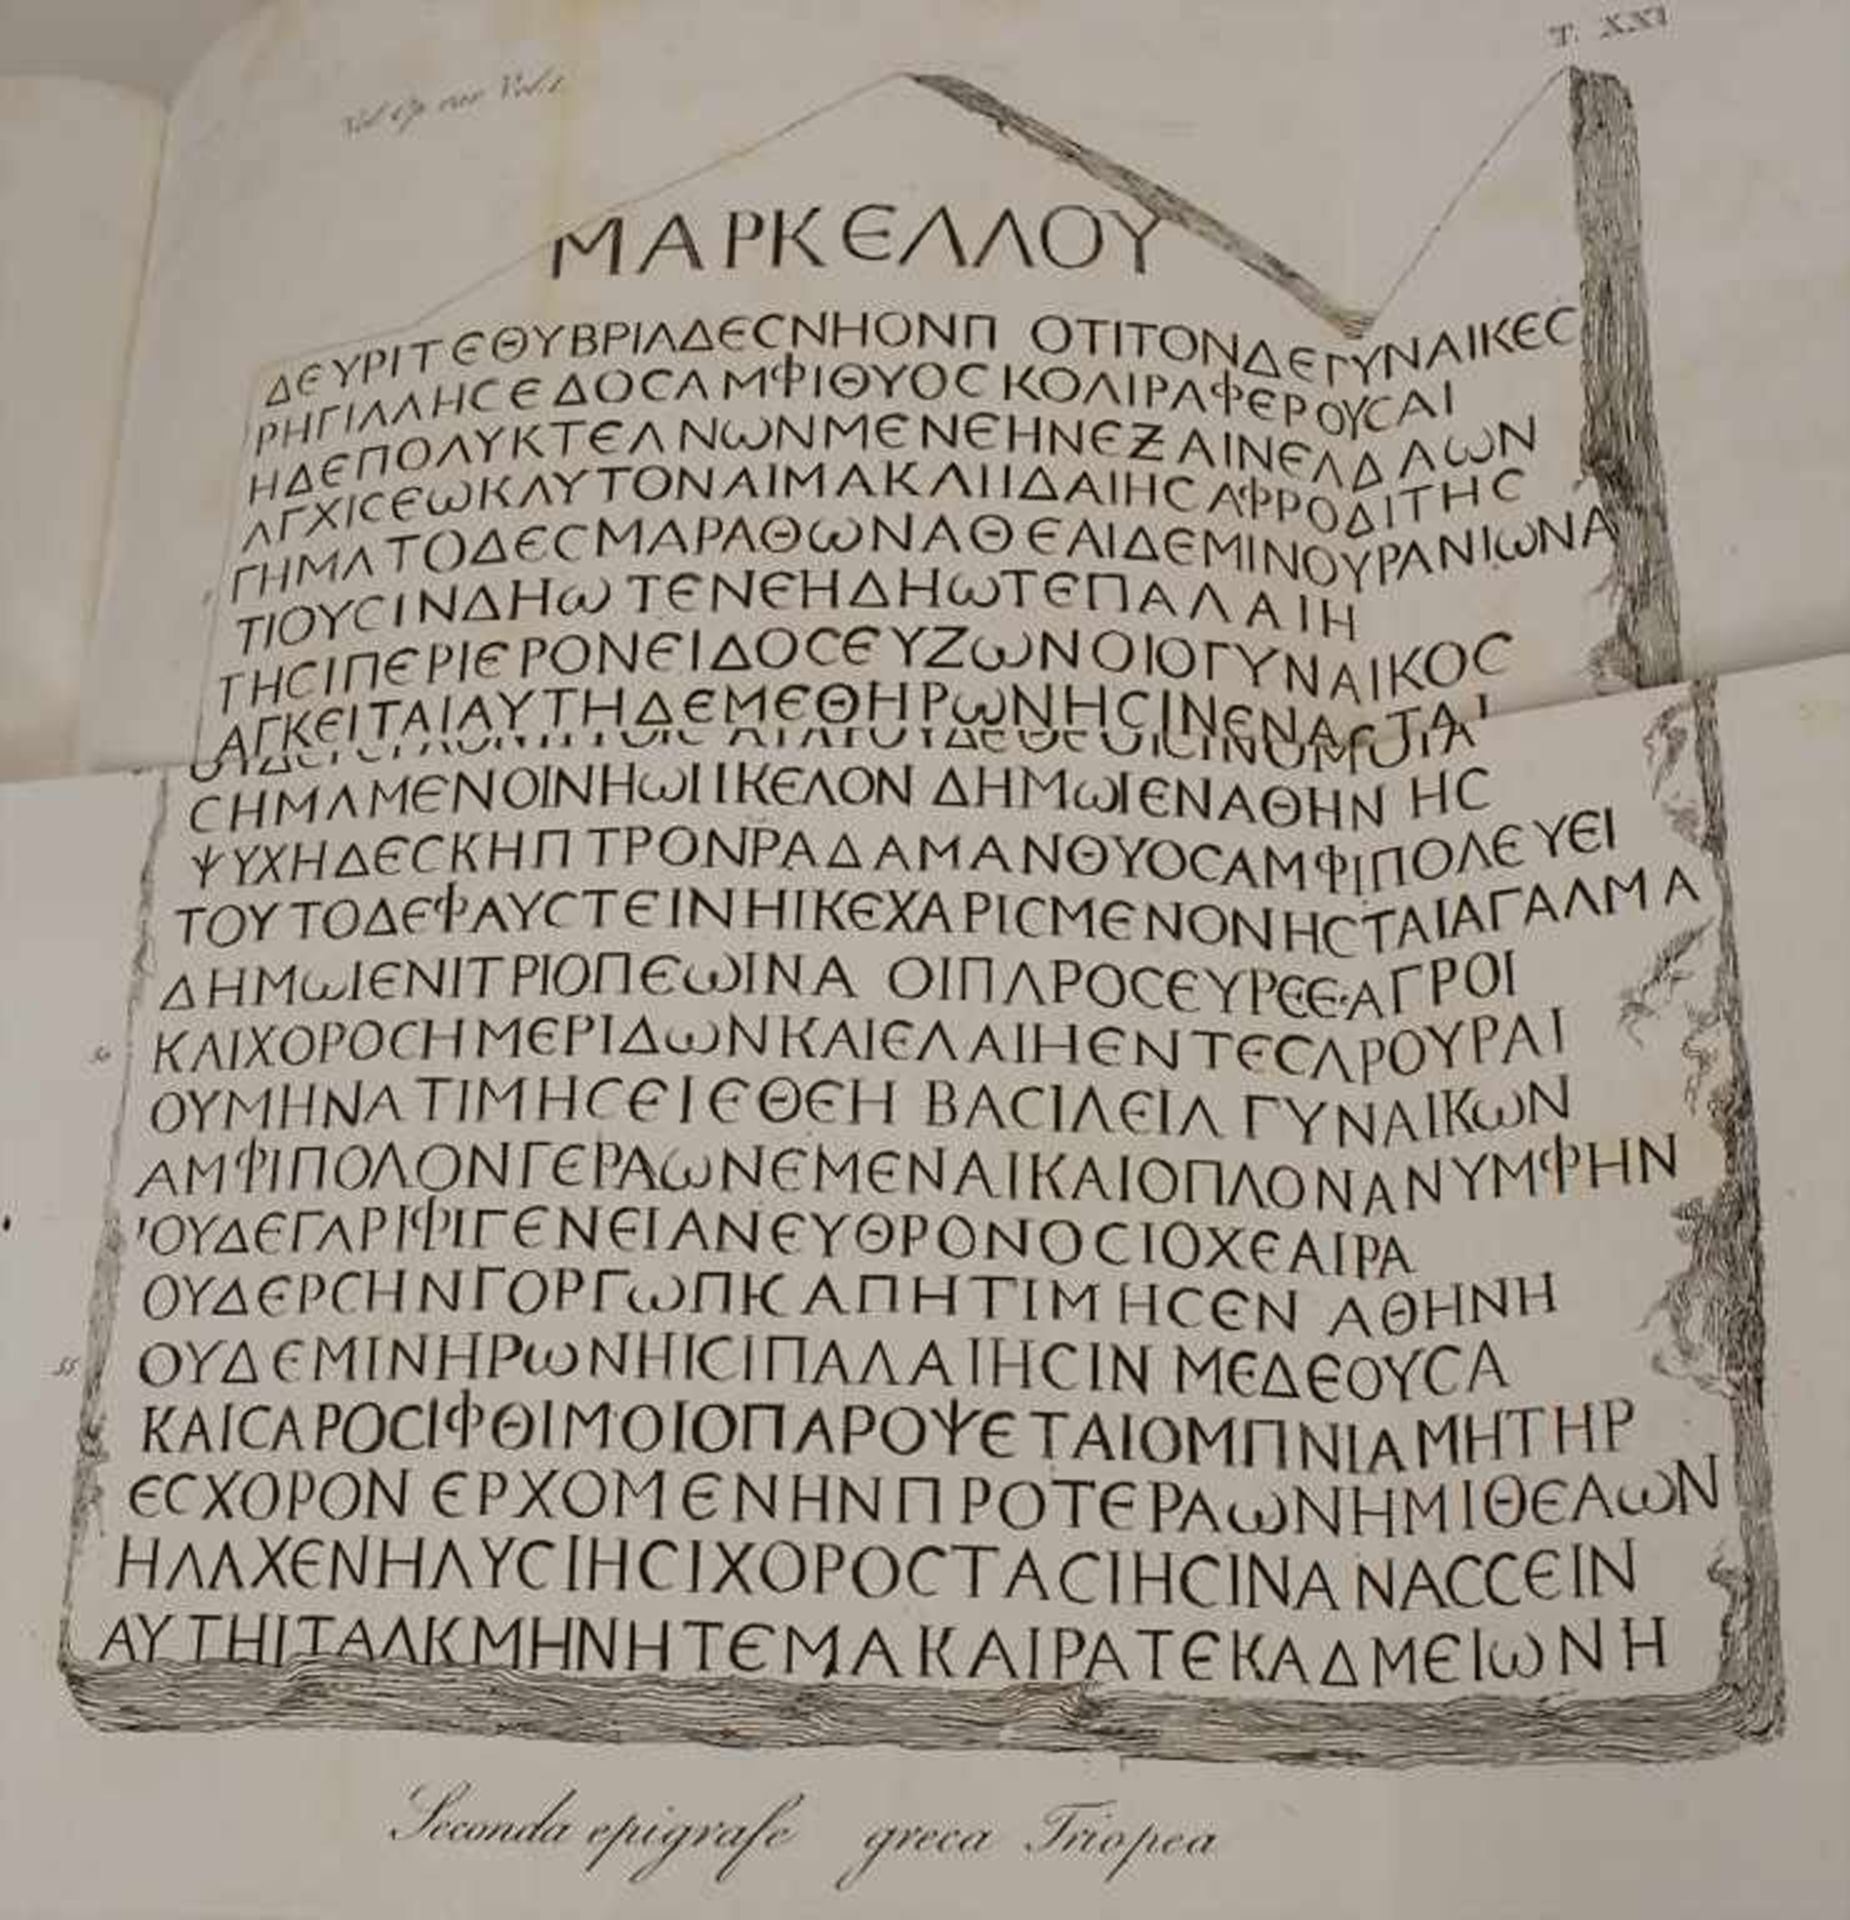 T. XXVI
ΜΑΡΚΕΛΛΟΥ
ΔΕΥΡΙΤΕΘΥΒΡΙΛΔΕϹΝΗΟΝΠ ΟΤΙΤΟΝΔΕΓΥΝΑΙΚΕϹ
ΡΗΓΙΛΛΗϹΕΔΟϹΑΜΦΙΘΥΟϹΚΟΛΙΡΑΦΕΡΟΥϹΑΙ
ΗΔΕΠΟΛΥΚΤΕΛΝωΝΜΕΝΕΗΝΕΖΑΙΝΕΛΔΛωΝ
ΛΓΧΙϹΕωΚΛΥΤΟΝΑΙΜΑΚΛΙΙΔΑΙΗϹΑΦΡΟΔΙΤΗϹ
ΓΗΜΛΤΟΔΕϹΜΑΡΑΘωΝΑΘΕΑΙΔΕΜΙΝΟΥΡΑΝΙωΝΑ
ΤΙΟΥϹΙΝΔΗωΤΕΝΕΗΔΗωΤΕΠΑΛΑΙΗ
ΤΗϹΙΠΕΡΙΕΡΟΝΕΙΔΟϹΕΥΖωΝΟΙΟΓΥΝΑΙΚΟϹ
ΑΓΚΕΙΤΑΙΑΥΤΗΔΕΜΕΘΗΡωΝΗϹΙΝΕΝΑϹΤΑΙ
ϹΗΜΛΜΕΝΟΙΝΗωΙΙΚΕΛΟΝ ΔΗΜωΙΕΝΑΘΗΝ ΗϹ
ΨΥΧΗΔΕϹΚΗΠΤΡΟΝΡΑΔΑΜΑΝΘΥΟϹΑΜΦΙΠΟΛΕΥΕΙ
ΤΟΥΤΟΔΕΦΑΥϹΤΕΙΝΗΙΚΕΧΑΡΙϹΜΕΝΟΝΗϹΤΑΙΑΓΑΛΜΑ
ΔΗΜωΙΕΝΙΤΡΙΟΠΕωΙΝΑ ΟΙΠΛΡΟϹΕΥΡΕΕ·ΑΓΡΟΙ
50 ΚΛΙΧΟΡΟϹΗΜΕΡΙΔωΝΚΑΙΕΛΑΙΗΕΝΤΕϹΛΡΟΥΡΑΙ
ΟΥΜΗΝΑΤΙΜΗϹΕΙΕΘΕΗ ΒΑϹΙΛΕΙΛ ΓΥΝΑΙΚωΝ
ΑΜΦΙΠΟΛΟΝΓΕΡΑωΝΕΜΕΝΑΙΚΑΙΟΠΛΟΝΑΝΥΜΦΗΝ
ΟΥΔΕΓΛΡΙΦΙΓΕΝΕΙΑΝΕΥΘΡΟΝΟϹΙΟΧΕΑΙΡΑ
ΟΥΔΕΡϹΗΝΓΟΡΓωΠΚΑΠΗΤΙΜΗϹΕΝ ΑΘΗΝΗ
55 ΟΥΔΕΜΙΝΗΡωΝΗΙϹΙΠΑΛΑΙΗϹΙΝ ΜΕΔΕΟΥϹΑ
ΚΑΙϹΑΡΟϹΙΦΘΙΜΟΙΟΠΑΡΟΨΕΤΑΙΟΜΠΝΙΑΜΗΤΗΡ
ΕϹΧΟΡΟΝ ΕΡΧΟΜΕΝΗΝΠΡΟΤΕΡΑωΝΗΜΙΘΕΑωΝ
ΗΛΛΧΕΝΗΛΥϹΙΗϹΙΧΟΡΟϹΤΑϹΙΗϹΙΝΑΝΑϹϹΕΙΝ
ΑΥΤΗΙΤΑΛΚΜΗΝΗΤΕΜΑΚΑΙΡΑΤΕΚΑΔΜΕΙωΝΗ
Seconda epigrafe greca Triopea